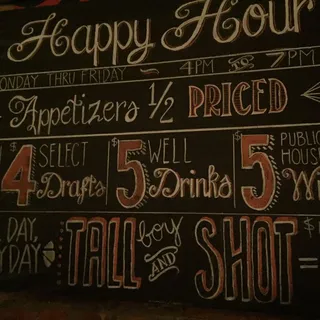 Happy Hour
ONDAY THRU FRIDAY ~ 4PM TO 7PM
Appetizers 1/2 PRICED
$4 SELECT Drafts $5 WELL Drinks $5 PUBLIC HOUSE W
DAY, YDAY TALL boy AND SHOT = $